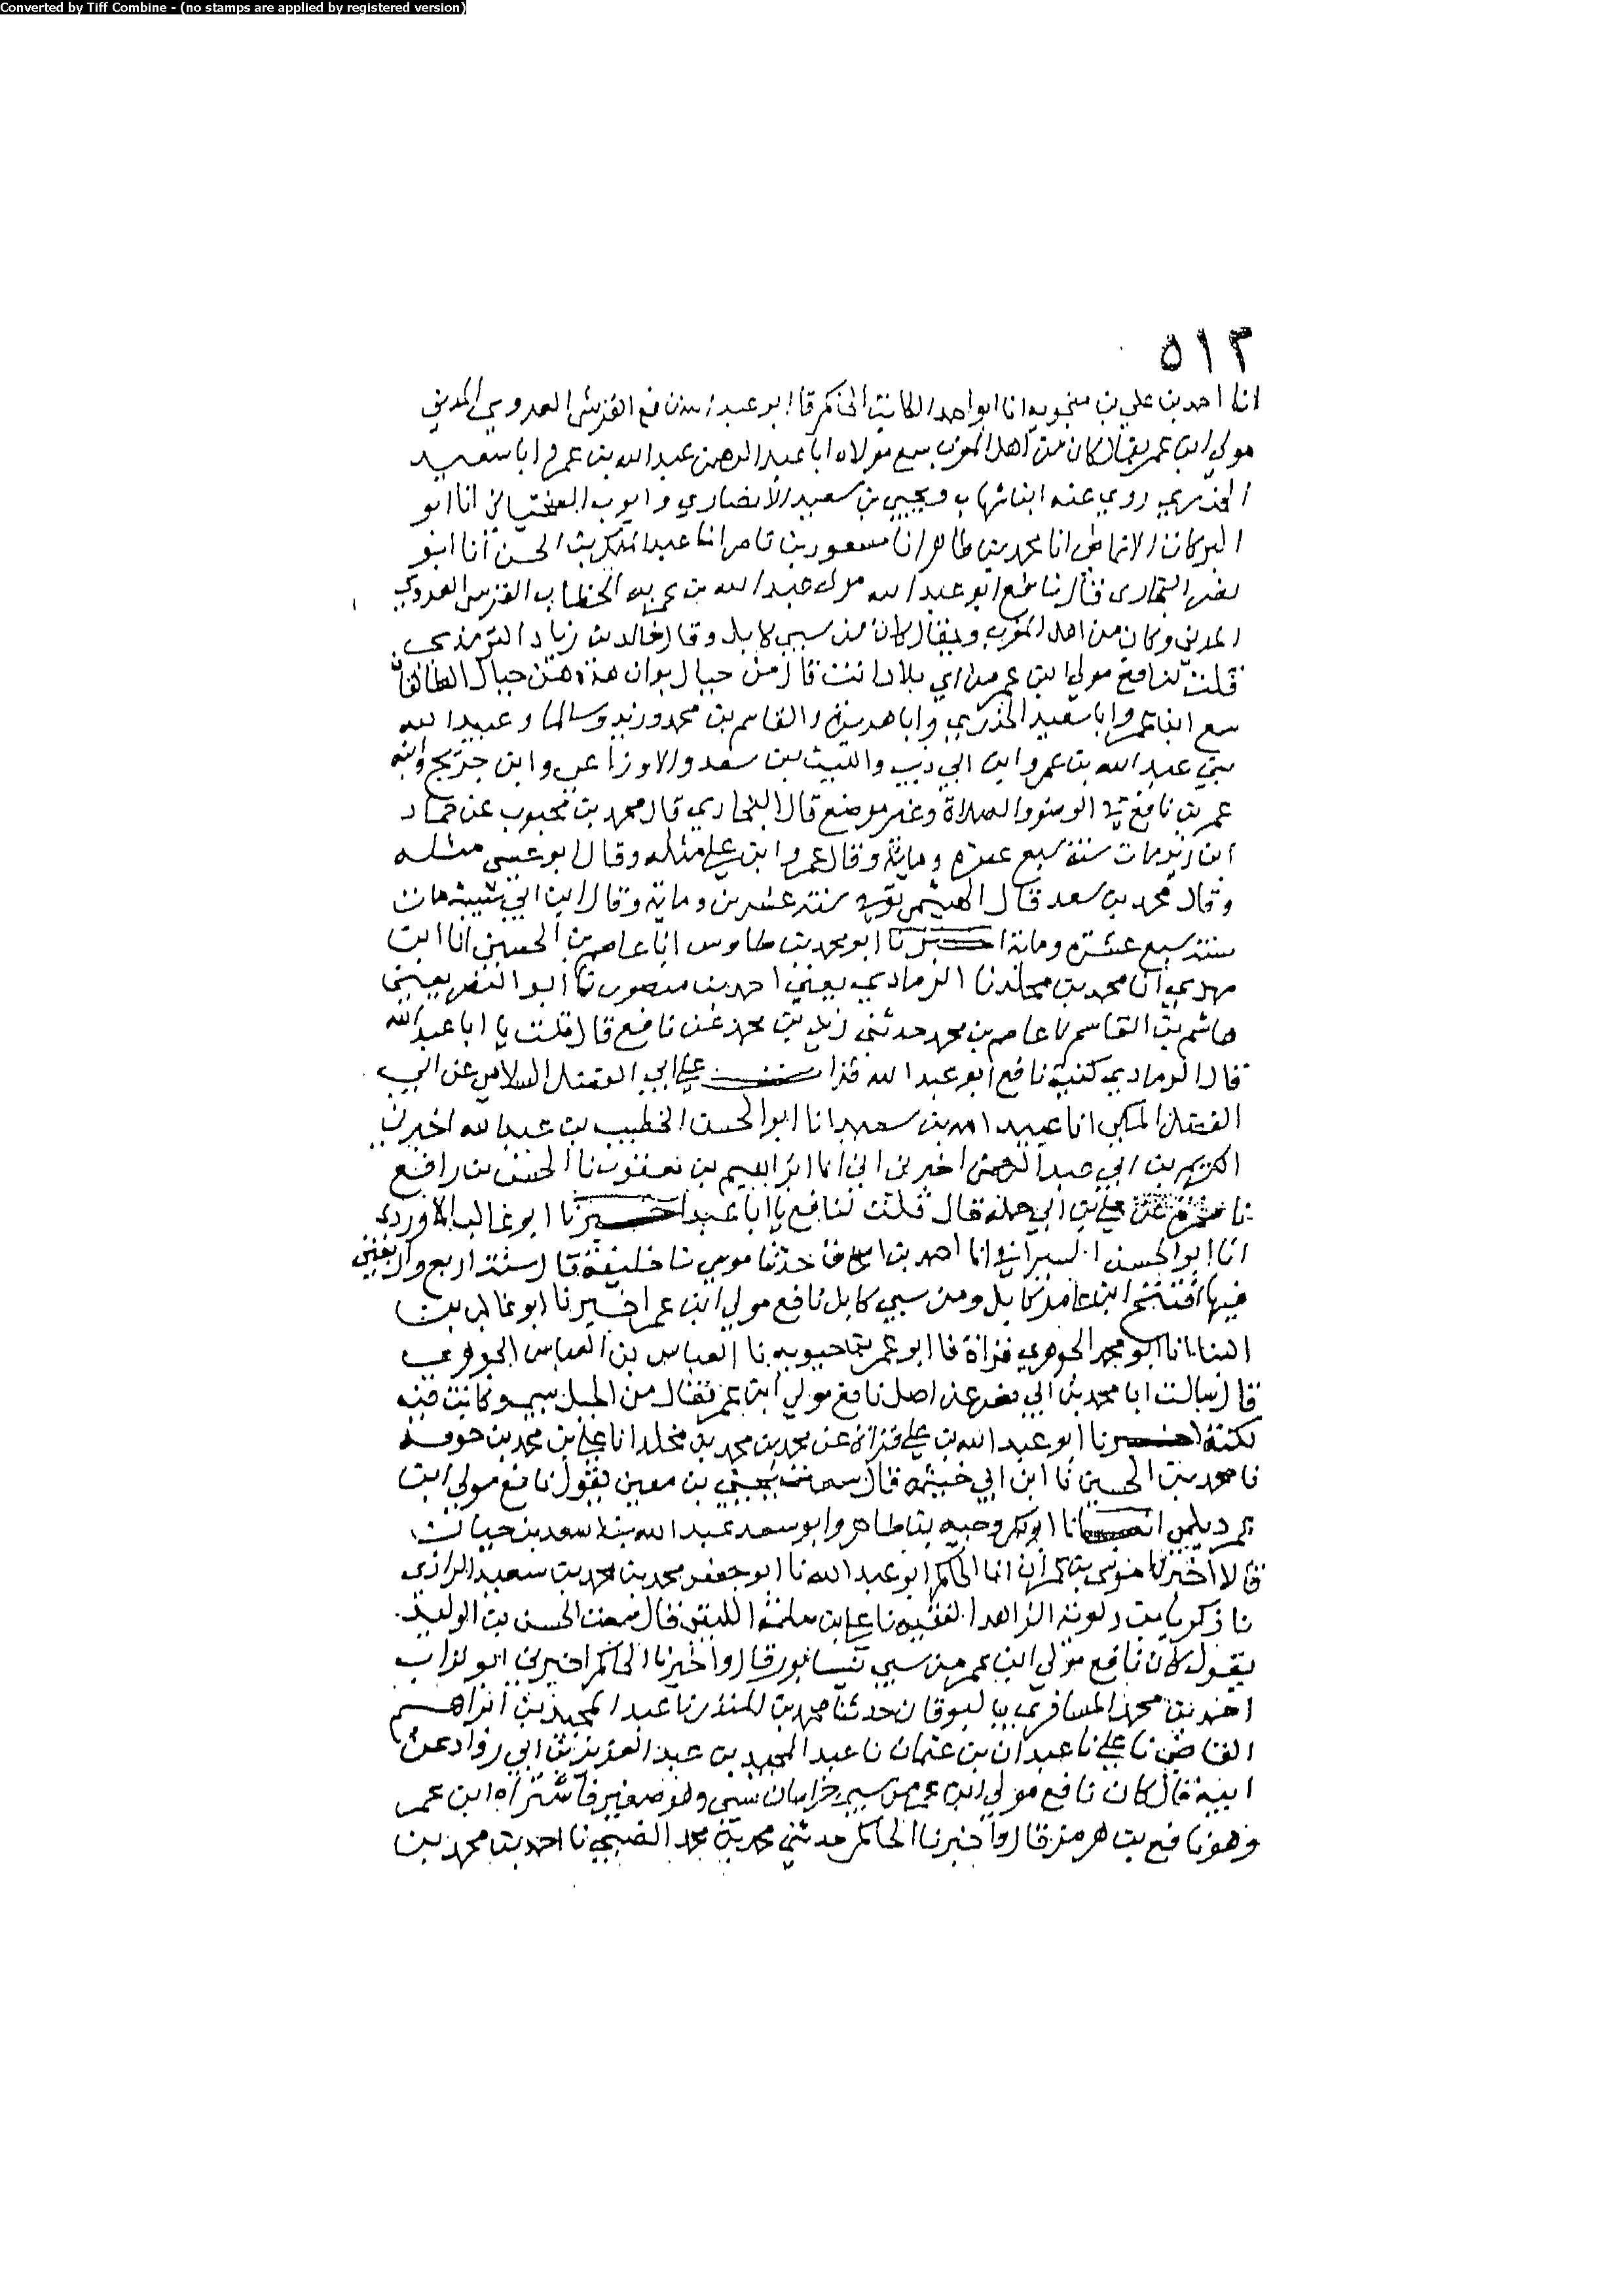 Converted by Tiff Combine - (no stamps are applied by registered version)
٥١٣
انا احمد بن علي بن منجويه انا ابو احمد الحاكم قال ابو عبد الله نافع القرشي العدوي المديني
مولى ابن عمر يقال كان من اهل المغرب سمع مولاه ابا عبد الرحمن عبد الله بن عمر وابا سعيد
الخدري روي عنه ابن شهاب ويحيي بن سعيد الانصاري وايوب السختياني انا ابو
البركات الانماطي انا محمد بن طاهر انا مسعود بن ناصر انا عبد الملك بن الحسن انا ابو
نصر البخاري قال نافع ابو عبد الله مولى عبد الله بن عمر بن الخطاب القرشي العدوي
المديني وكان من اهل المغرب ويقال كان من سبي كابل وقال خالد بن زياد الترمذي
قلت لنافع مولي ابن عمر من اي بلاد انت قال من جبال بران هذه من جبال الطالقان
سمع ابن عمر وابا سعيد الخدري وابا هريرة والقاسم بن محمد وزيد وسالما وعبيد الله
بني عبد الله بن عمر وابن ابي ذيب والليث بن سعد والاوزاعي وابن جريج وابنه
عمر بن نافع في الوضو والصلاة وغير موضع قال البخاري قال محمد بن محبوب عن حماد
ابن زيد مات سنة سبع عشرة وماية وقال عمرو ابن علي مثله وقال ابو عيسى مثله
وقال محمد بن سعد قال الهيثم توفي سنة عشرين وماية وقال ابن ابي شيبة مات
سنة سبع عشرة وماية اخبرنا ابو محمد بن طاوس انا عاصم بن الحسين انا ابن
مهدي انا محمد بن مخلد نا الرمادي يعني احمد بن منصور نا ابو النضر يعني
هاشم بن القاسم نا عاصم بن محمد حدثني زيد بن محمد عن نافع قال قلت يا ابا عبد الله
قال الرمادي كنية نافع ابو عبد الله قرات علي ابي الفضل السلامي عن ابي
الفضل المكي انا عبيد الله بن سعيد انا ابو الحسن الخطيب بن عبد الله اخبرني
الكريم بن ابي عبد الرحمن اخبرني ابي انا ابراهيم بن يعقوب نا الحسن بن رافع
نا ضمرة عن علي بن ابي حملة قال قلت لنافع يا ابا عبد اخبرنا ابو غالب الماوردي
انا ابو الحسن السيرافي انا احمد بن اسحاق حدثنا موسى نا خليفة قال سنة اربع واربعين
فيها افتتح ابن عامر كابل ومن سبي كابل نافع مولي ابن عمر اخبرنا ابو غالب بن
البنا انا ابو محمد الجوهري قراة نا ابو عمر بن حيويه نا العباس بن العباس الجوهري
قال سالت ابا محمد بن ابي نصر عن اصل نافع مولي ابن عمر فقال من الجبل سبي وكانت فيه
لكنة اخبرنا ابو عبد الله بن علي قراة عن محمد بن محمد بن مخلد انا علي بن محمد بن خزفة
نا محمد بن الحسين نا ابن ابي خيثمة قال سمعت يحيي بن معين يقول نافع مولي ابن
عمر ديلمي انا ابو بكر وجيه بن طاهر وابو سعد عبد الله بن اسعد بن حيان
قالا اخبرنا موسى بن عمران انا الحاكم ابو عبد الله نا ابو جعفر محمد بن محمد بن سعيد الرازي
نا زكريا بن دلويه الزاهد الفقيه نا علي بن سلمة اللبقي قال سمعت الحسن بن الوليد
يقول كان نافع مولي ابن عمر من سبي نيسابور قال واخبرنا الحاكم اخبرني ابو تراب
احمد بن محمد المسافري بالنوقان حدثنا محمد بن المنذر نا عبد المجيد بن ابراهيم
القاضي نا علي نا عبدان بن عثمان نا عبد المجيد بن عبد العزيز بن ابي رواد عن
ابيه قال كان نافع مولي ابن عمر من سبي خراسان سبي وهو صغير فاشتراه ابن عمر
وهو نافع بن هرمز قال واخبرنا الحاكم حدثني محمد بن محمد الضبي نا احمد بن محمد بن